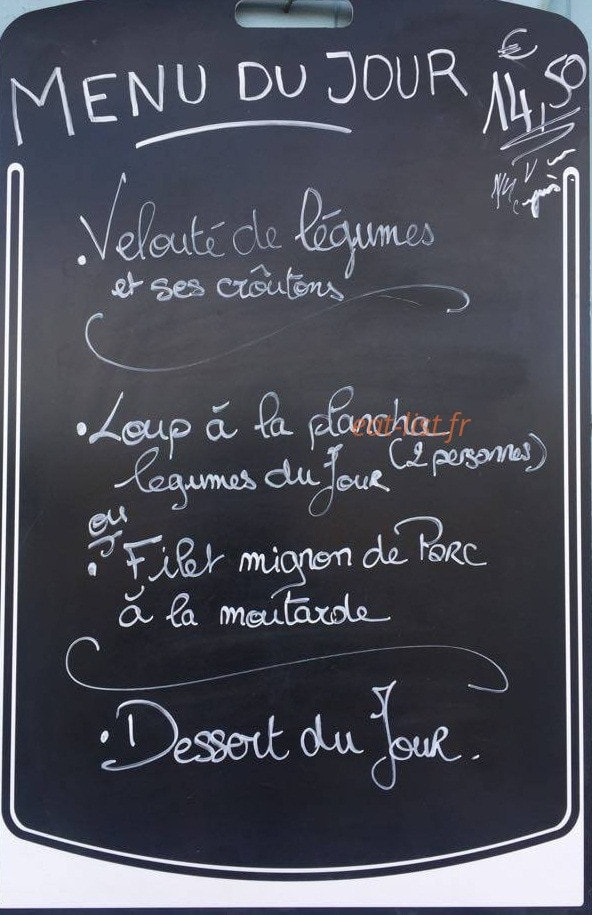 MENU DU JOUR
€
14,50
• Velouté de légumes
et ses croûtons
• Loup à la plancha
eat-list.fr
légumes du Jour (2 personnes)
ou
• Filet mignon de Porc
à la moutarde
• Dessert du Jour.